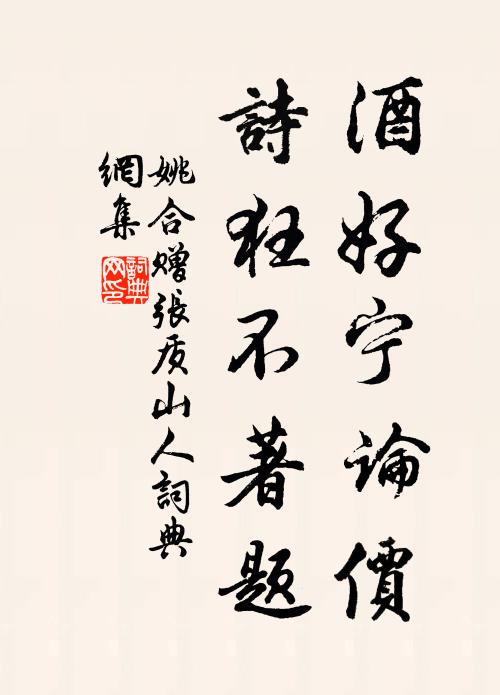 酒好宁論價
詩狂不著题
姚合赠張质山人詞典
網集
詞典网印